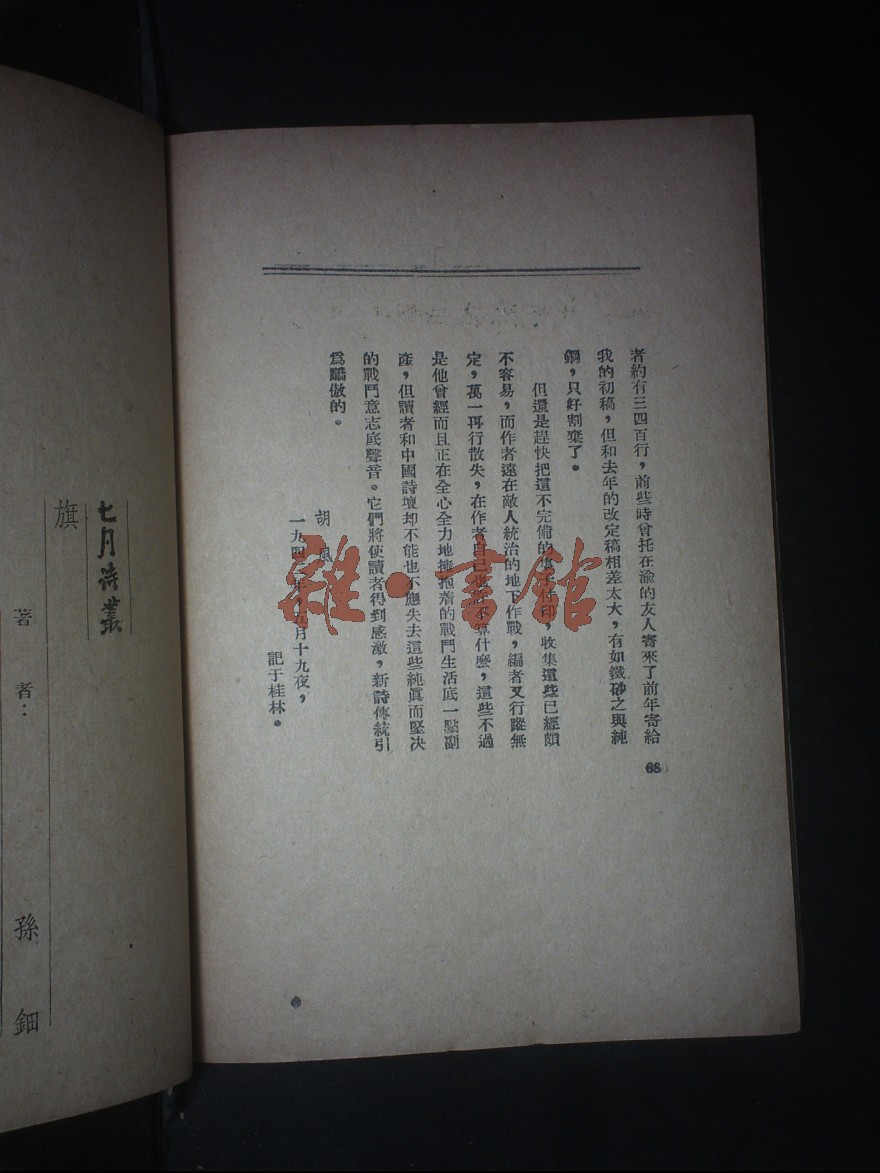 者約有三四百行，前些時曾托在渝的友人寄來了前年寄給
我的初稿，但和去年的改定稿相差太大，有如鐵砂之與純
鋼，只好割棄了。
但還是趕快把這不完備的集子付印，收集這些已經頗
不容易，而作者遠在敵人統治的地下作戰，編者又行蹤無
定，萬一再行散失，在作者自己也許不算什麽，這些不過
是他曾經而且正在全心全力地擁抱着的戰鬥生活底一點副
產，但讀者和中國詩壇却不能也不應失去這些純眞而堅决
的戰鬥意志底聲音。它們將使讀者得到感激，新詩傳統引
爲驕傲的。
胡風
一九四 年，五月十九夜，
記于桂林。
68
七月詩叢
旗
著者：
孫鈿
雜·書館